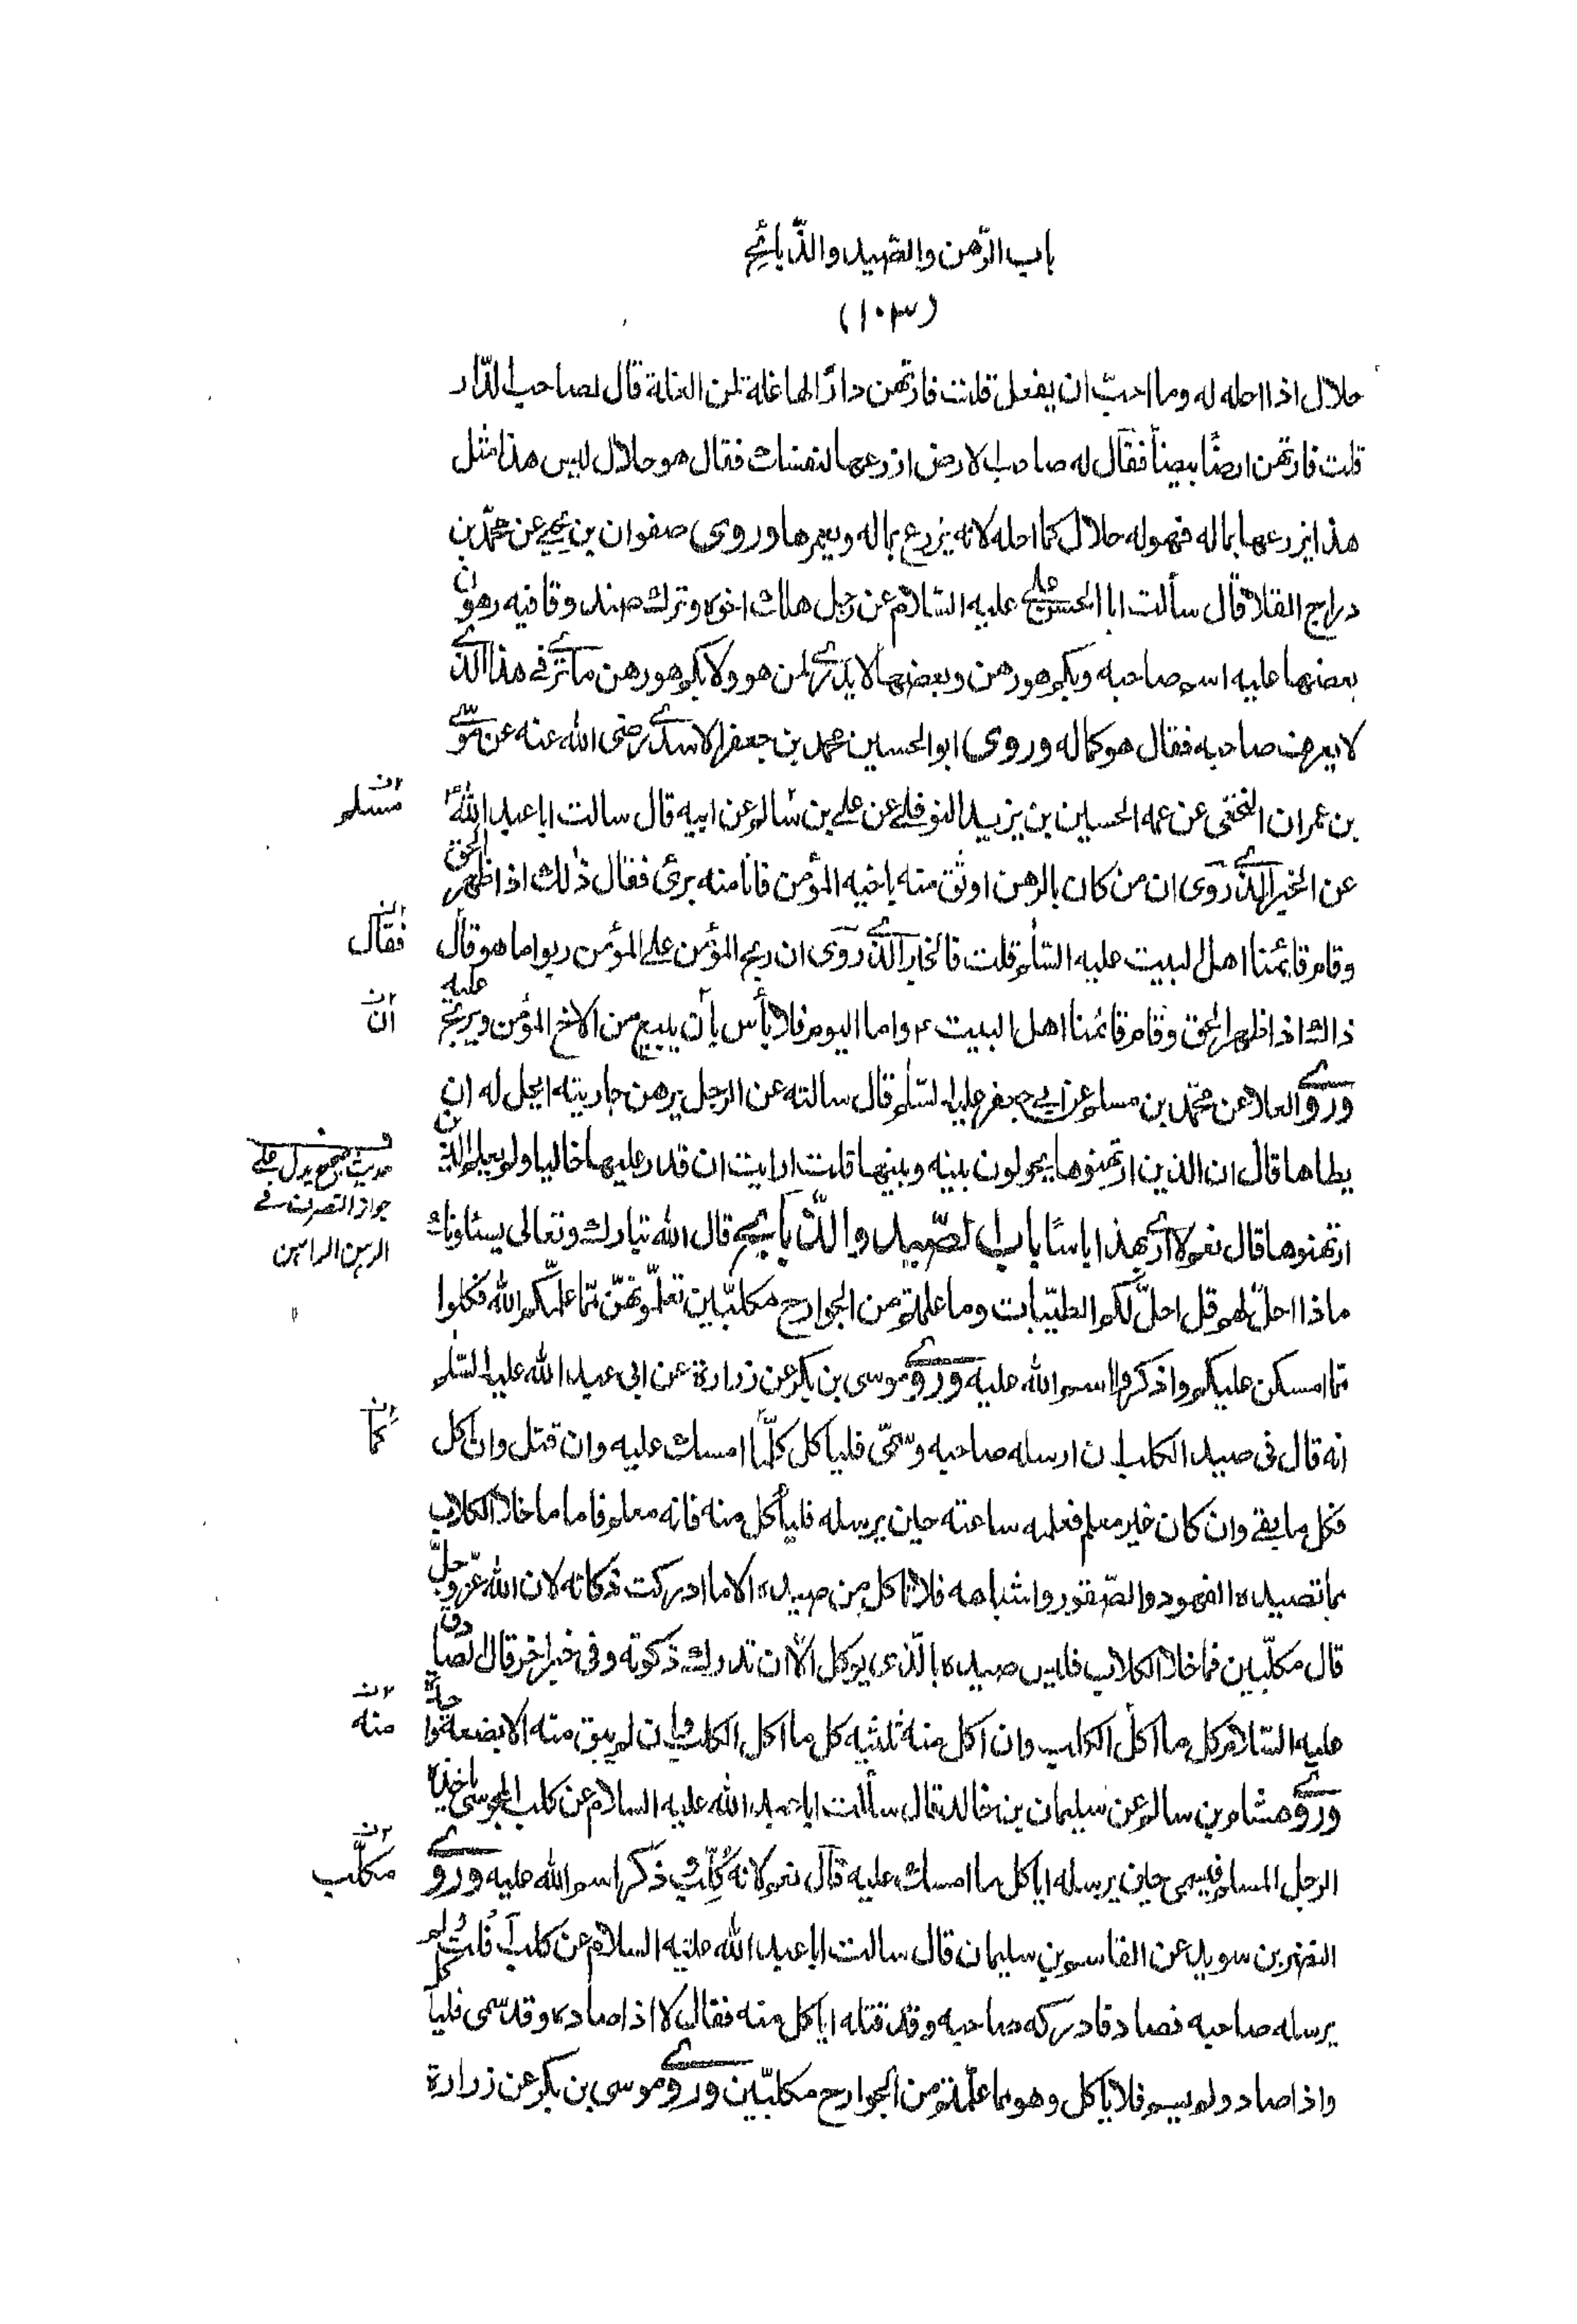 باب الرّهن والصّيد والذّبائح
(١٠٣)
حلال اذا احله له وما احبّ ان يفعل قلت فارتهن دارًا لها غلة لمن الغلة قال لصاحب الدّار
قلت فارتهن ارضًا بيضاً فقال له صاحب الارض ازرعها لنفسك فقال هو حلال ليس هذا مثل
هذا يزرعها بماله فهو له حلال كما احله لانه يزرع بماله ويعمرها وروى صفوان بن يحيى عن محمّد بن
درايج القلا قال سألت ابا الحسن علیه السّلام عن رجل هلك اخوه وترك صندوقا فيه رهون
بعضها عليه اسم صاحبه وبكم هو رهن وبعضها لا يدرى لمن هو ولا بكم هو رهن ما ترى في هذا الذى
لا يعرف صاحبه فقال هو كماله وروى ابو الحسين محمد بن جعفر الاسدى رضى الله عنه عن موسى
بن عمران النخعى عن عمه الحسين بن يزيد النوفلى عن على بن سالم عن ابيه قال سالت ابا عبد الله ع
مسلم
عن الخبر الذى روى ان من كان بالرهن اوثق منه باخيه المؤمن فانا منه برئ فقال ذلك اذا ظهر الحق
وقام قائمنا اهل البيت عليه السّلم قلت فالخبر الذى روى ان ربح المؤمن على المؤمن ربوا ما هو قال
فقال
ذاك اذا ظهر الحق وقام قائمنا اهل البيت ع واما اليوم فلا بأس بأن يبيع من الاخ المؤمن ويربح عليه
ان
وروى العلا عن محمّد بن مسلم عن ابى جعفر عليه السّلم قال سالته عن الرجل يرهن جاريته ايحل له ان
يطاها قال ان الذين ارتهنوها يحولون بينه وبينها قلت ارايت ان قدر عليها خاليا ولم يعلم الذين
حديث صحيح يدل على
جواز التصرف في
الرهن الراهن
ارتهنوها قال نعم لا ارى بهذا باسًا باب الصّيد والذّبائح قال الله تبارك وتعالى يسئلونك
ماذا احلّ لهم قل احلّ لكم الطيّبات وما علمتم من الجوارح مكلبّين تعلّمونهنّ ممّا علّمكم الله فكلوا
ممّا امسكن عليكم واذكروا اسم الله عليه وروى موسى بن بكر عن زرارة عن ابى عبد الله عليه السّلم
انه قال فى صيد الكلب ان ارسله صاحبه وسمّى فلياكل كلّما امسك عليه وان قتل وان اكل
مما
فكل ما بقى وان كان غير معلم فعلمه ساعته حين يرسله فلياكل منه فانه معلم فاما ما خلا الكلاب
مما تصيده الفهود والصّقور واشباهه فلا تاكل من صيده الا ما ادركت ذكاته لان الله عزّ وجلّ
قال مكلّبين فما خلا الكلاب فليس صيده بالّذى يوكل الّا ان تدرك ذكوته وفى خبر اخر قال الصادق
عليه السّلام كل ما اكل الكلب وان اكل منه ثلثيه كل ما اكل الكلب وان لم يبق منه الا بضعة واحدة
منه
وروى هشام بن سالم عن سليمان بن خالد قال سألت ابا عبد الله عليه السلام عن كلب المجوسى ياخذه
الرجل المسلم فيسمى حين يرسله اياكل ما امسك عليه قال نعم لانه كلّب ذكر اسم الله عليه وروى
مكلّب
النضر بن سويد عن القاسم بن سليمان قال سالت ابا عبد الله عليه السلام عن كلب افلت ولم
يرسله صاحبه فصاد فادركه صاحبه وقد قتله اياكل منه فقال لا اذا صاده وقد سمى فليا
واذا صاد ولم يسم فلا ياكل وهو مما علّمتم من الجوارح مكلبّين وروى موسى بن بكر عن زرارة